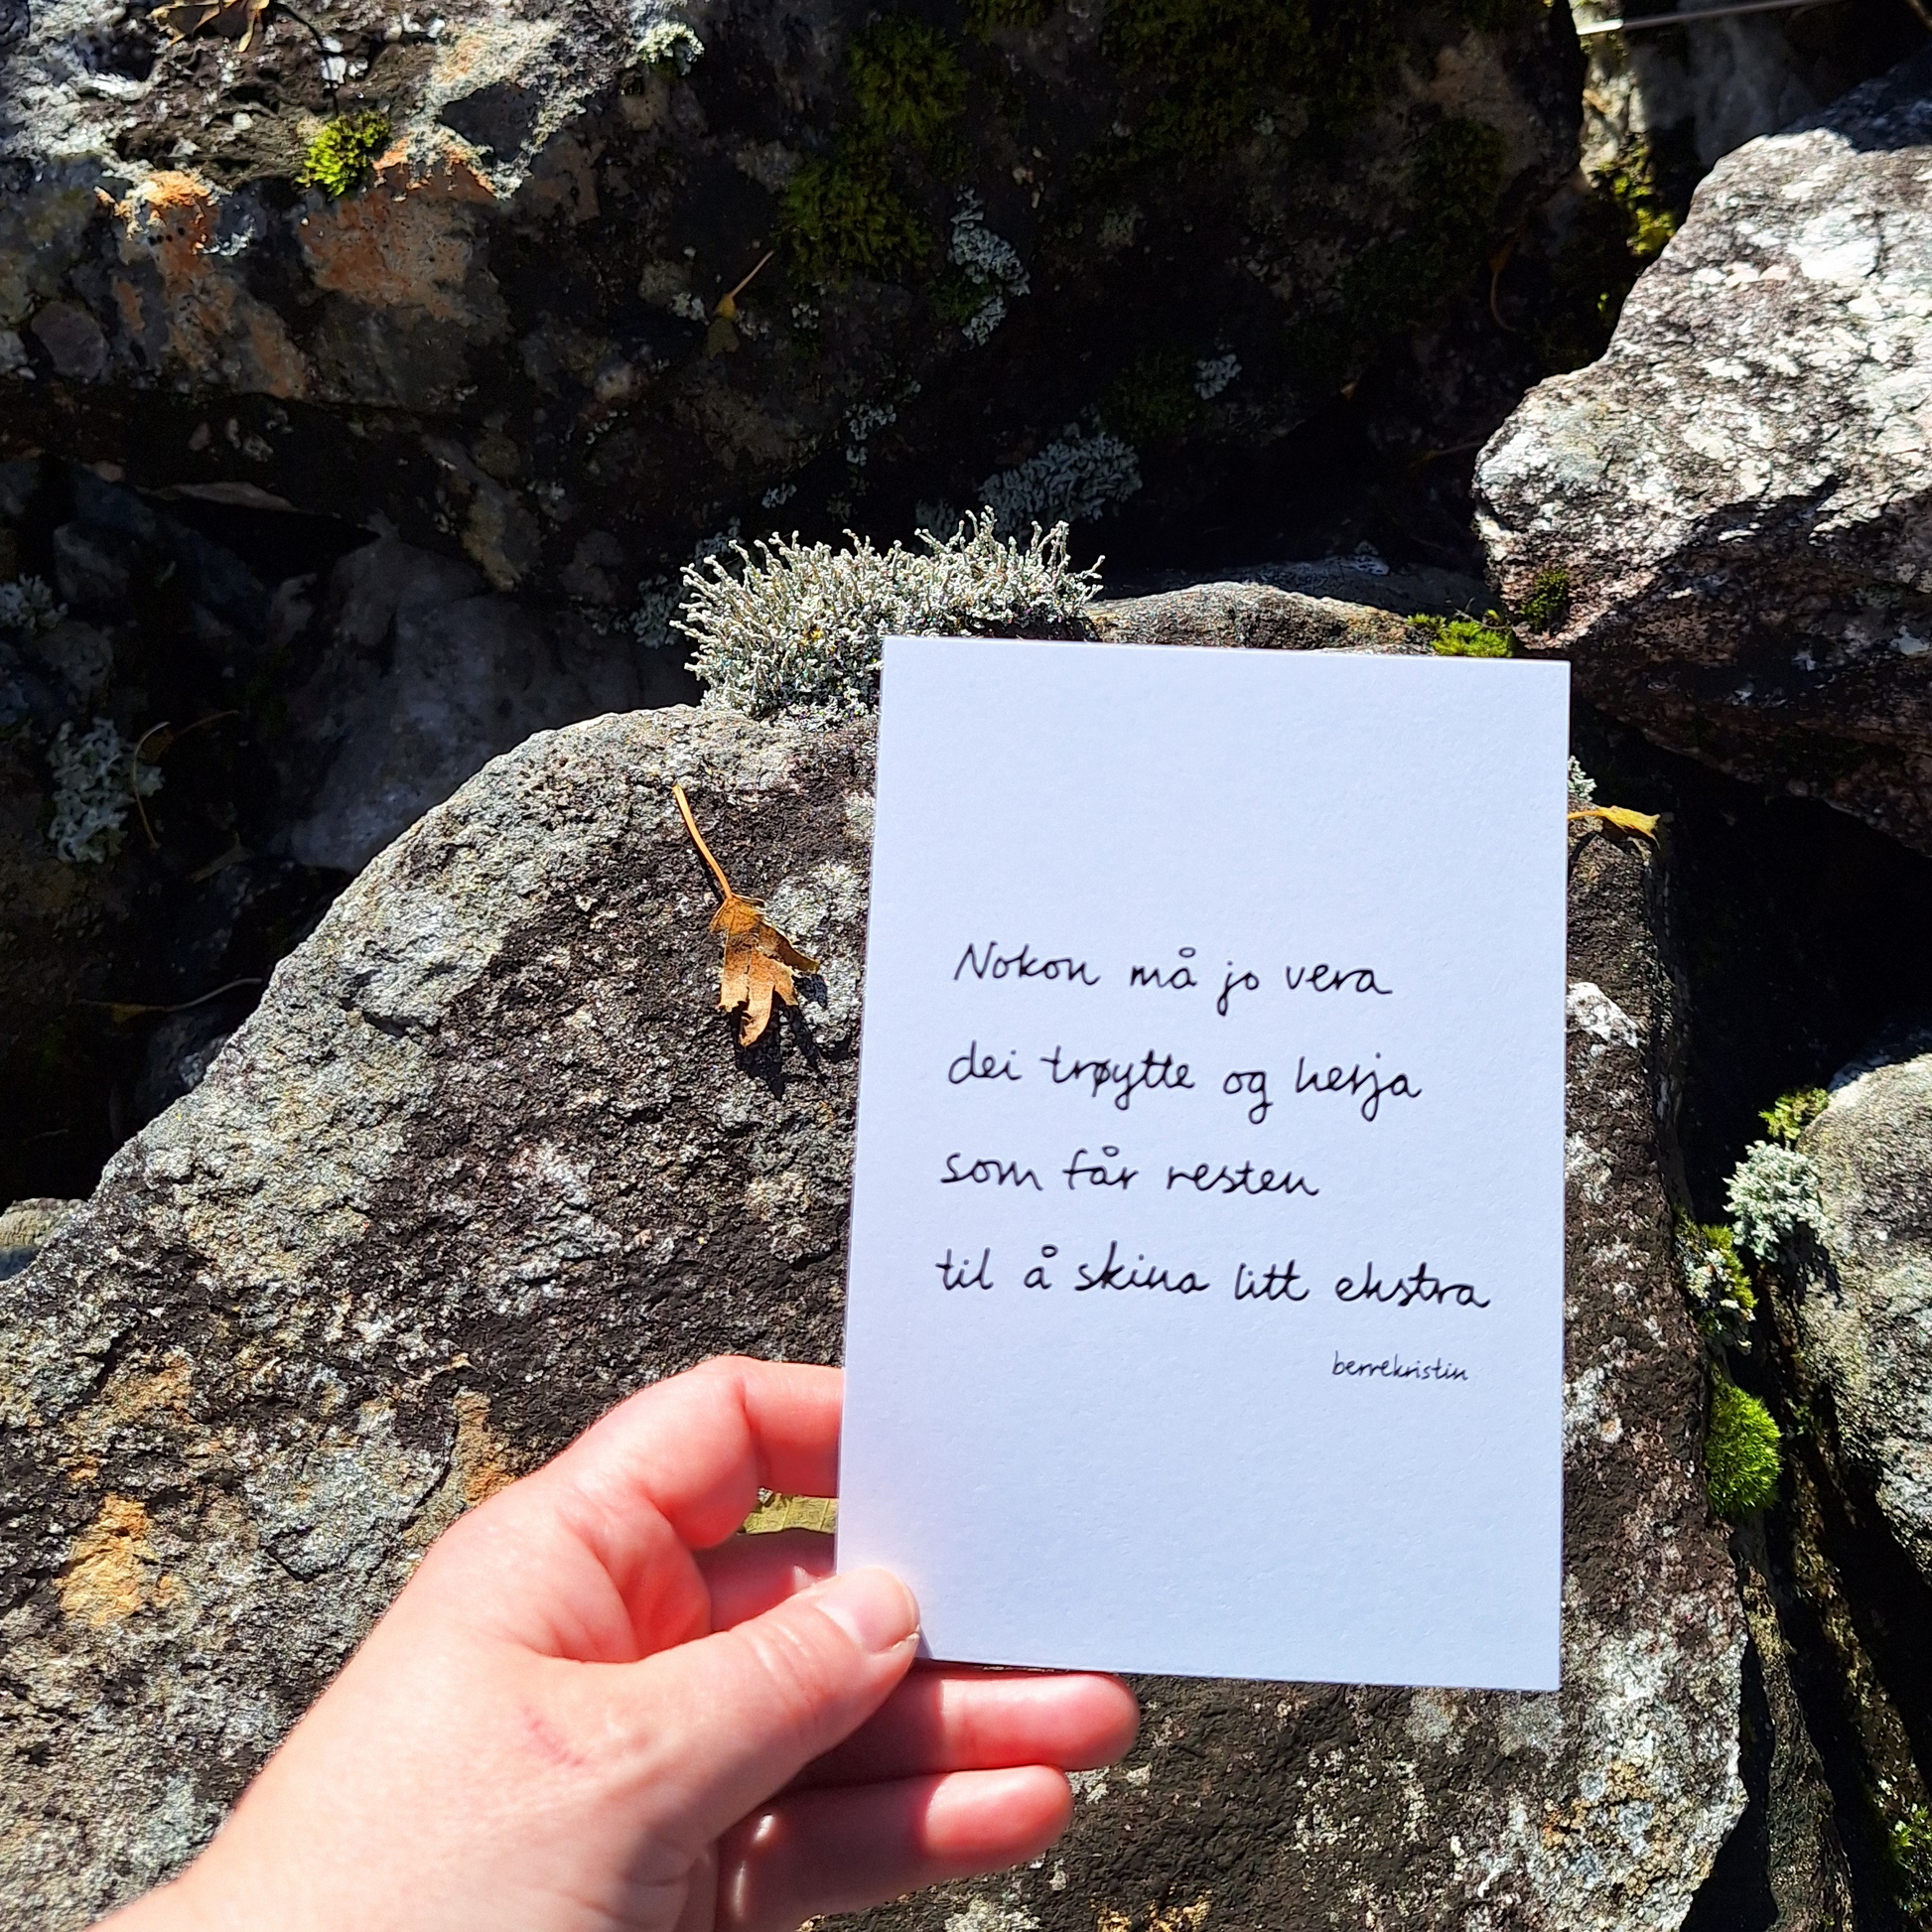 Nokon må jo vera
dei trøytte og herja
som får resten
til å skina litt ekstra
berrekristin